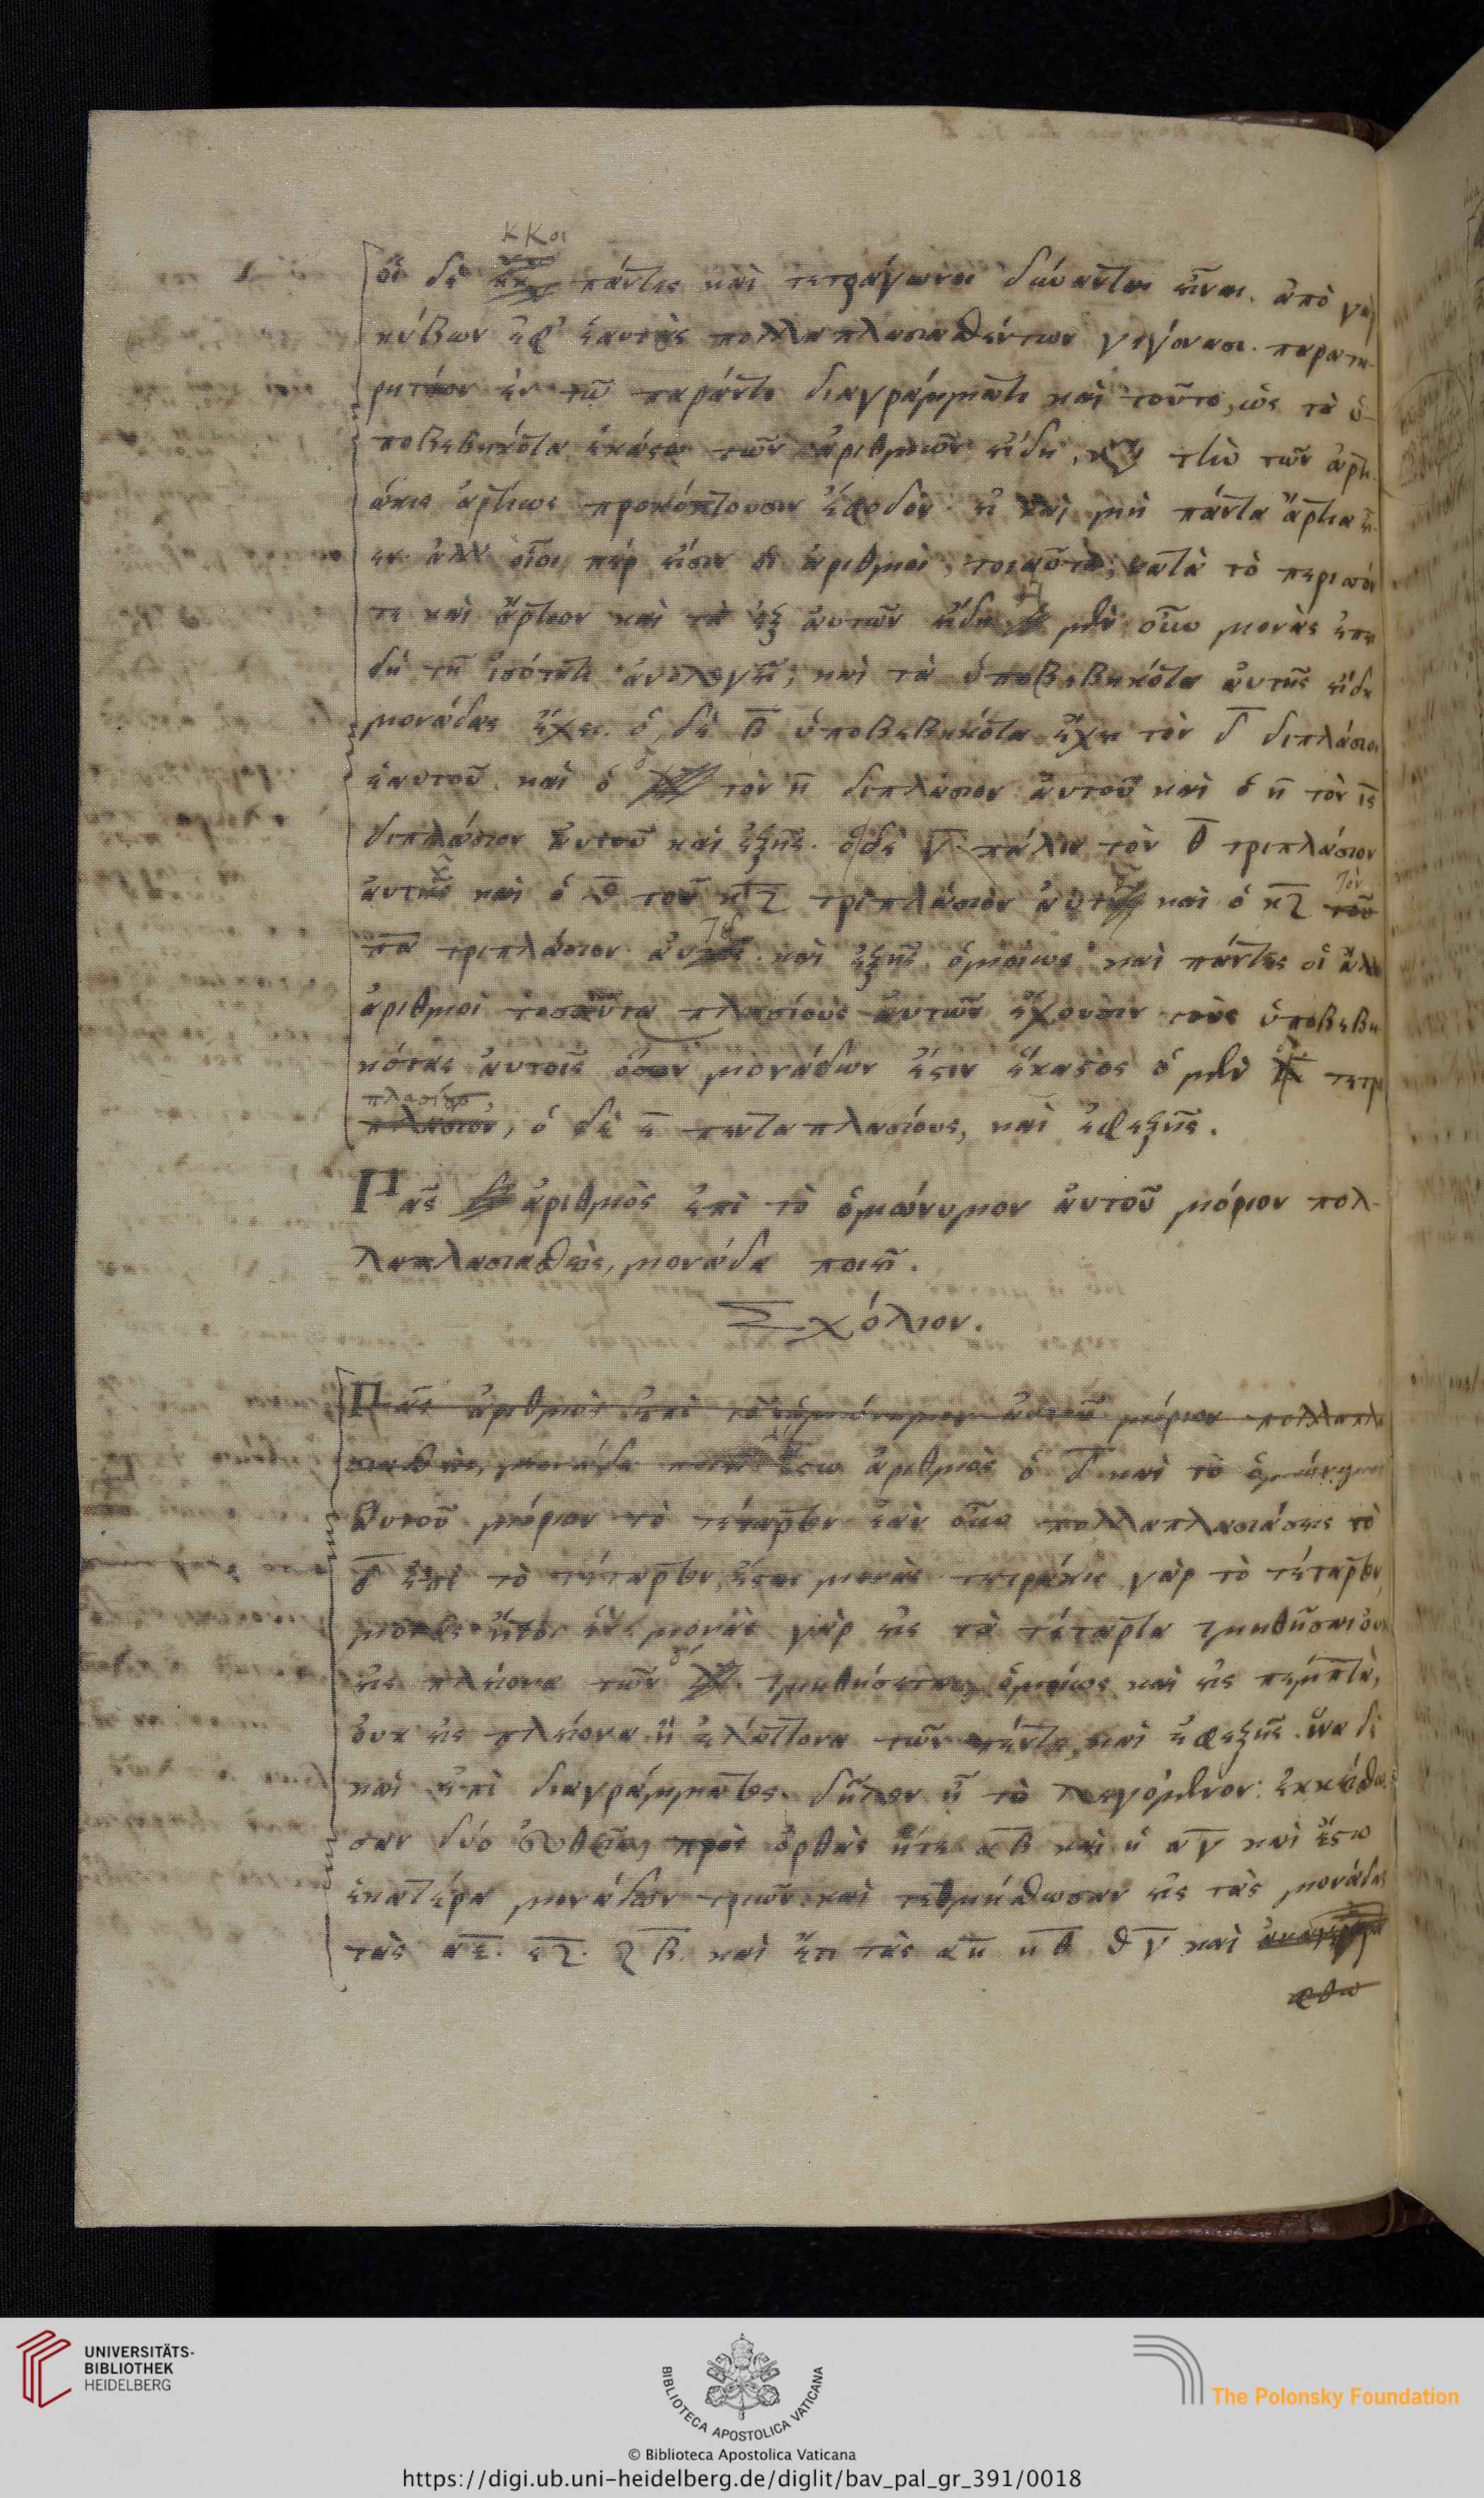 κκοι
οἱ δὲ πάντες καὶ τετράγωνοι δύνανται εἶναι. ἀπὸ γὰρ
κύβων ἐφ' ἑαυτοὺς πολλαπλασιασθέντων γεγόνασι. παρατη-
ρητέον ἐν τῶ παρόντι διαγράμματι καὶ τοῦτο, ὡς τὰ ὑ-
ποβεβηκότα ἑκάστω τῶν ἀριθμῶν εἴδη, τὴν τῶν ἀρτι-
άκις ἀρτίως προκόπτουσιν ἔφοδον. εἰ καὶ μὴ πάντα ἄρτιά
ἀλλ' οἷοι πέρ εἰσιν οἱ ἀριθμοὶ, τοιαῦτα, κατὰ τὸ περισσόν
τε καὶ ἄρτιον καὶ τὰ ἐξ αὐτῶν εἴδη ἡ μὲν οὖν μονὰς ἐπει
δὴ τῇ ἰσότητι ἀναλογεῖ, καὶ τὰ ὑποβεβηκότα αὐτῆς εἴδη
μονάδας ἔχει. ὁ δὲ β ὑποβεβηκότα ἔχει τὸν δ διπλάσιον
ἑαυτοῦ. καὶ ὁ δ τὸν η διπλάσιον αὐτοῦ καὶ ὁ η τὸν ις
διπλάσιον αὐτοῦ καὶ ἑξῆς. ὁ δὲ γ πάλιν τὸν θ τριπλάσιον
αὐτοῦ καὶ ὁ θ τοῦ κζ τριπλάσιον αὐτοῦ καὶ ὁ κζ τὸν τοῦ
πα τριπλάσιον αὐτοῦ. καὶ ἑξῆς ὁμοίως καὶ πάντες οἱ ἄλλοι
ἀριθμοὶ τοσαῦτα πλασίους αὐτῶν ἔχουσιν τοὺς ὑποβεβη
κότας αὐτοῖς ὅσων μονάδων ἐστιν ἕκαστος ὁ μὲν δ τετρα
πλασίους
πλάσιον, ὁ δὲ ε πενταπλασίους, καὶ ἐφεξῆς.
Πᾶς ἀριθμὸς ἐπὶ τὸ ὁμώνυμον αὐτοῦ μόριον πολ-
λαπλασιασθεὶς, μονάδα ποιεῖ.
Σχόλιον.
Πᾶς ἀριθμὸς ἐπὶ τὸ ὁμώνυμον αὐτοῦ μόριον πολλαπλα
σιασθεὶς, μονάδα ποιεῖ ἔστω ἀριθμὸς ὁ δ καὶ τὸ ὁμώνυμον
αὐτοῦ μόριον τὸ τέταρτον ἐὰν οὖν πολλαπλασιάσεις τὸ
δ ἐπὶ τὸ τέταρτον, ἔσται μονὰς τετράκις γὰρ τὸ τέταρτον,
μονὰς ἤτοι ἓν μονὰς γὰρ εἰς τὰ τέταρτα τμηθῆσαι οὐκ
εἰς πλείονα τῶν δ τμηθήσεται, ὁμοίως καὶ εἰς πέμπτα,
οὐκ εἰς πλείονα ἢ ἐλάττονα τῶν πέντε, καὶ ἐφεξῆς. ἵνα δὲ
καὶ ἐπὶ διαγράμματος δῆλον ᾖ τὸ λεγόμενον: ἐκκείσθω-
σαν δύο εὐθεῖαι πρὸς ὀρθὰς ἥτε αβ καὶ ἡ αγ καὶ ἔστω
ἑκατέρα μονάδων τριῶν καὶ τετμήσθωσαν εἰς τὰς μονάδας
τὰς αε. εζ. ζβ. καὶ ἔτι τὰς αη ηθ θγ καὶ
φθω
UNIVERSITÄTS-
BIBLIOTHEK
HEIDELBERG
BIBLIOTECA APOSTOLICA VATICANA
The Polonsky Foundation
© Biblioteca Apostolica Vaticana
https://digi.ub.uni-heidelberg.de/diglit/bav_pal_gr_391/0018